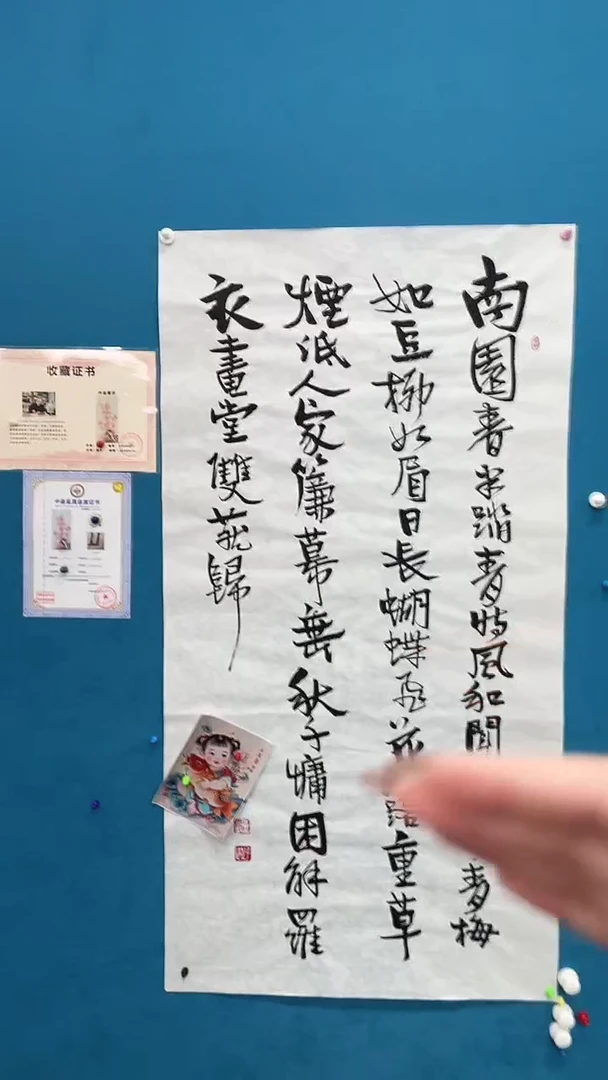 南園春半踏青時風和聞青梅
如豆柳如眉日長蝴蝶飛花露重草
煙低人家簾幕垂秋千慵困解羅
衣畫堂雙燕歸
收藏证书